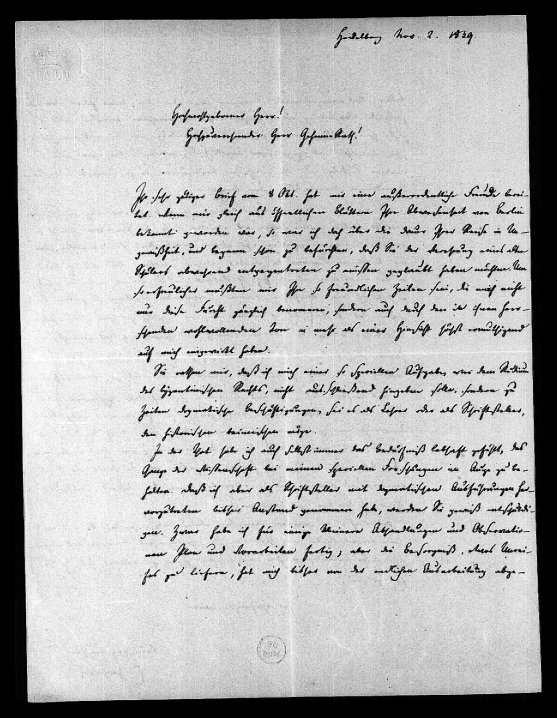 Heidelberg Nov. 2. 1839
Hochwohlgeborner Herr!
Hochzuverehrender Herr Geheime Rath!
Ihr sehr gütiger Brief vom 8 Okt. hat mir eine außerordentliche Freude berei-
tet. Denn mir zwar aus öffentlichen Blättern Ihre Abwesenheit von Berlin
bekannt geworden war, so war ich doch über die Dauer Ihrer Reise in Un-
gewißheit, und begann schon zu befürchten, daß Sie der Drohung eines alten
Schülers abwehrend entgegentreten zu müssen geglaubt haben möchten. Um
so erfreulicher mußten mir Ihre so freundlichen Zeilen sein, die mich nicht
nur diese Furcht gänzlich benommen, sondern auch durch den in ihnen herr-
schenden wohlwollenden Ton in mehr als einer Hinsicht höchst ermuthigend
auf mich eingewirkt haben.
Sie rathen mir, daß ich mich einer so speciellen Aufgabe, wie dem Studium
des byzantinischen Rechts, nicht ausschließend hingeben solle, sondern zu
Zeiten dogmatische Beschäftigungen, sei es als Lehrer oder als Schriftsteller,
den historischen beimischen möge.
In der That habe ich auch selbst immer das Bedürfniß lebhaft gefühlt, das
Ganze der Wissenschaft bei meinen speciellen Forschungen im Auge zu be-
halten. Daß ich aber als Schriftsteller mit dogmatischen Ausführungen her-
vorzutreten bisher Anstand genommen habe, werden Sie gewiß entschuldi-
gen. Zwar habe ich für einige kleinere Abhandlungen und Observatio-
nen Plan und Vorarbeiten fertig; aber die Besorgniß, etwas Unrei-
fes zu liefern, hat mich bisher von der endlichen Ausarbeitung abge-